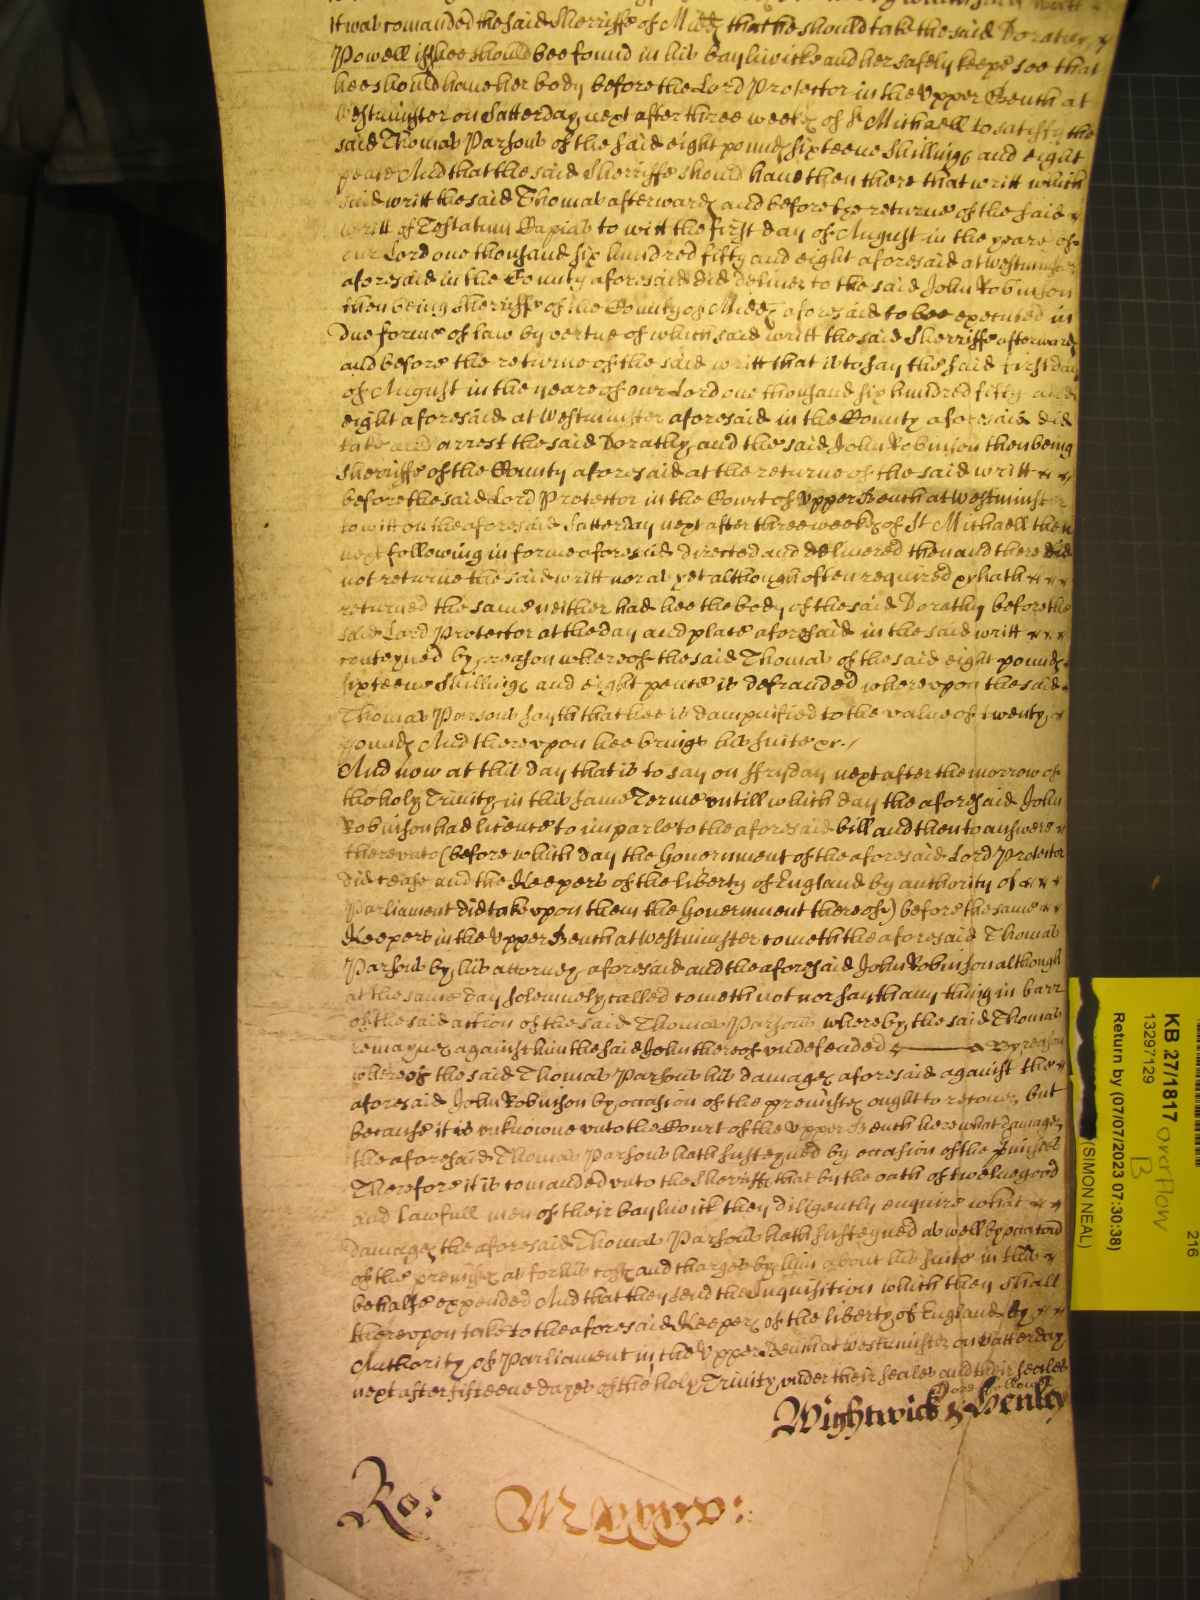 It was comanded the said Sherriffe of Midd that he should take the said Dorathy
Powell if shee should bee found in his bayliwicke and her safely keepe soe that
hee should have her body before the Lord Protector in the Upper Bench at
Westminster on Satterday next after three weekes of St Michaell to satisfy the
said Thomas Parsons of the said eight pounds sixteene shillings and eight
pence And that the said Sherriffe should have then there that writt which
said writt the said Thomas afterwards and before the returne of the said
writt of Testatum Capias to witt the first day of August in the yeare of
our Lord one thousand six hundred fifty and eight aforesaid at Westminster
aforesaid in the County aforesaid did deliver to the said John Robinson
then being Sherriffe of the County of Midd aforesaid to bee executed in
due forme of law by vertue of which said writt the said Sherriffe afterwards
and before the returne of the said writt that is to say the said first day
of August in the yeare of our Lord one thousand six hundred fifty and
eight aforesaid at Westminster aforesaid in the County aforesaid did
take and arrest the said Dorathy and the said John Robinson then being
Sherriffe of the County aforesaid at the returne of the said writt
before the said Lord Protector in the Court of Upper Bench at Westminster
to witt on the aforesaid Satterday next after three weekes of St Michaell then
next following in forme aforesaid directed and delivered then and there did
not returne the said writt nor as yet although often required hath
returned the same neither had hee the body of the said Dorathy before the
said Lord Protector at the day and place aforesaid in the said writt
conteyned by reason whereof the said Thomas of the said eight pounds
sixteene shillings and eight pence is defrauded whereupon the said
Thomas Parsons sayth that hee is dampnified to the value of twenty
pounds And thereupon hee brings his suite &c.
And now at this day that is to say on ffryday next after the morrow of
the holy Trinity in this same Terme untill which day the aforesaid John
Robinson had licence to imparle to the aforesaid bill and then to answere
thereunto (before which day the Government of the aforesaid Lord Protector
did cease and the Keepers of the liberty of England by authority of
Parliament did take upon them the Government thereof) before the same
Keepers in the Upper Bench at Westminster cometh the aforesaid Thomas
Parsons by his attorney aforesaid and the aforesaid John Robinson although
at the same day solemnely called cometh not nor sayth any thing in barr
of the said action of the said Thomas Parsons whereby the said Thomas
remaynes against him the said John thereof undefended By reason
whereof the said Thomas Parsons his damages aforesaid against the
aforesaid John Robinson by occasion of the premisses ought to recover but
because it is unknowne unto the Court of the Upper Bench here what damages
the aforesaid Thomas Parsons hath susteyned by occasion of the premisses
Therefore it is comanded unto the Sherriffe that by the oath of twelve good
and lawfull men of their bayliwick they diligently enquire what
damages the aforesaid Thomas Parsons hath susteyned as well by occasion
of the premisses as for his costs and charges by him about his suite in this
behalfe expended And that they send the Inquisition which they shall
thereupon take to the aforesaid Keepers of the liberty of England by
Authority of Parliament in the Upper Bench at Westminster on Satterday
next after fifteene dayes of the holy Trinity under their seales and their seales
Wightwick & Henley
Ro:
Mxxxv:
KB 27/1817 overflow
B
13297129
Return by (07/07/2023 07:30:38)
(SIMON NEAL)
216